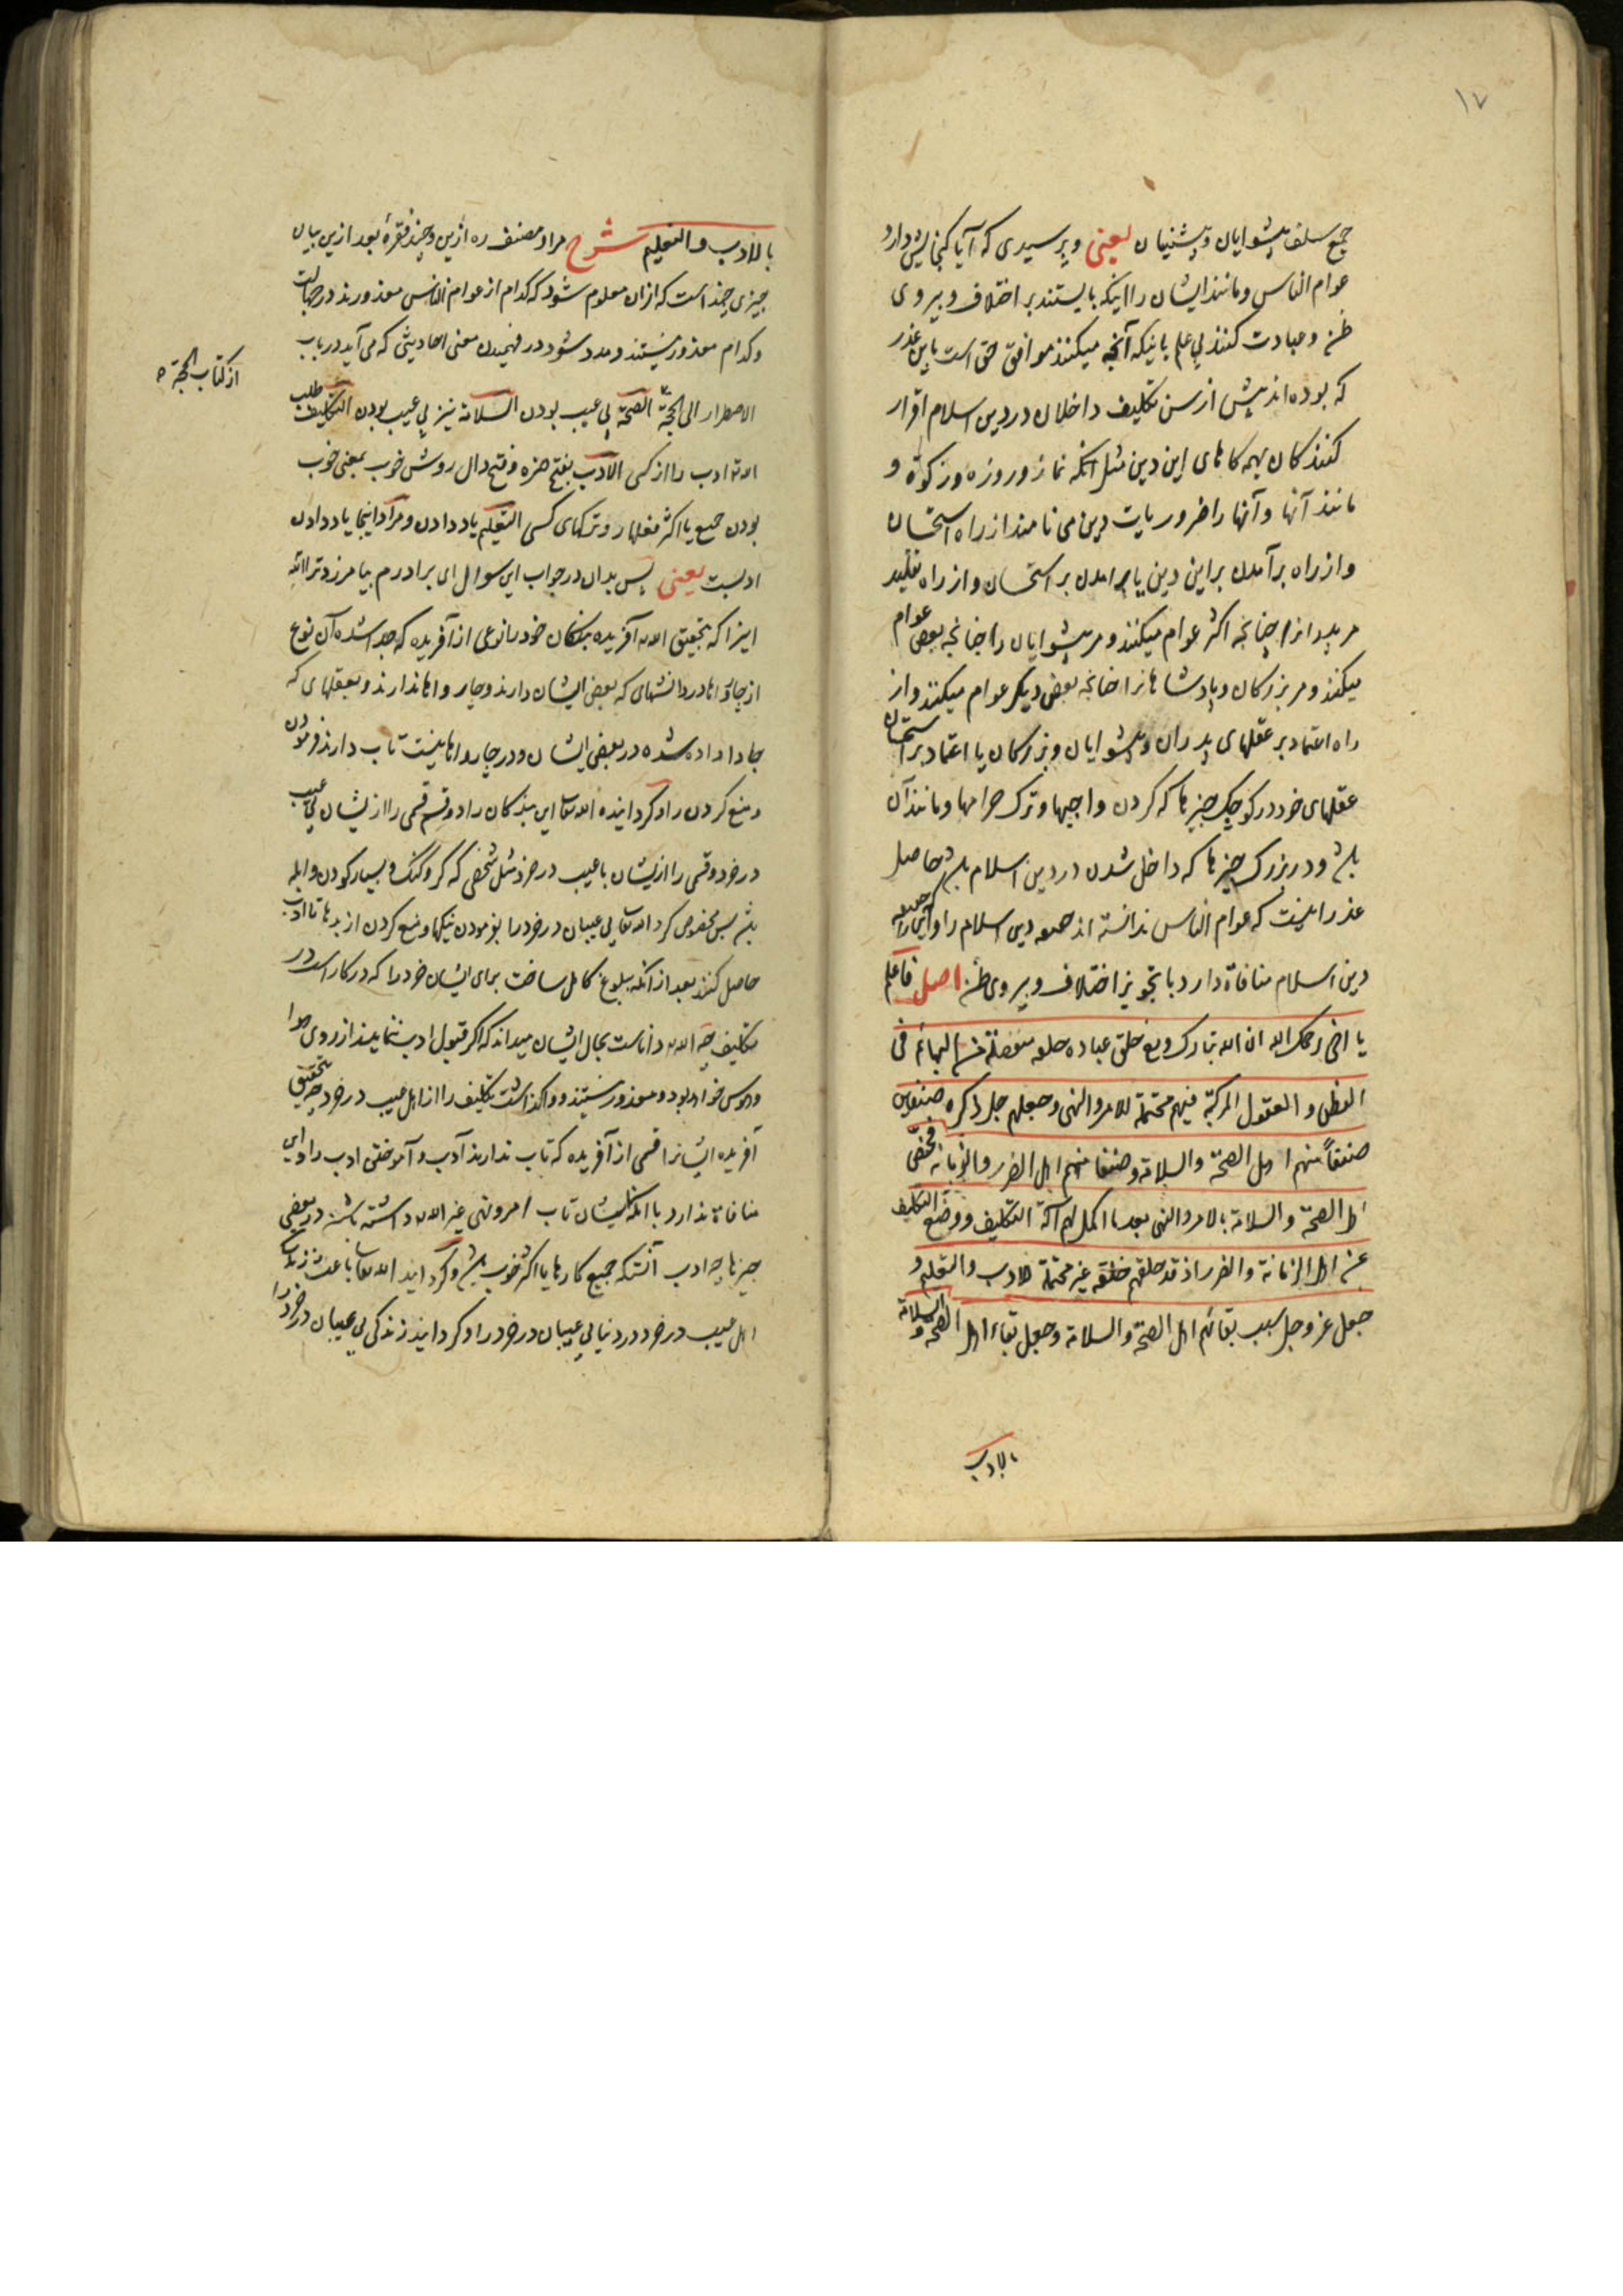 ١٧
جمع سلف پیشوایان و پیشنیان یعنی و پرسیدی که آیا گنجایش دارد
عوام الناس و مانند ایشان را اینکه بایستند بر اختلاف و پیروی
ظن و عبادت کنند بی علم باینکه آنچه میکنند موافق حق است باین عذر
که بوده اند پیش از سن تکلیف داخلان در دین اسلام اقرار
کنندگان بهمه کارهای این دین مثل آنکه نماز و روزه و زکوة و
مانند آنها و آنها را ضروریات دین می نامند از راه استحسان
و از راه برآمدن بر این دین یا برآمدن بر استحسان و از راه تقلید
مر پدر انرا چنانچه اکثر عوام میکنند و مر پیشوایان را چنانچه بعض عوام
میکنند و مر بزرگان و پادشاهانرا چنانچه بعض دیگر عوام میکنند و از
راه اعتماد بر عقلهای پدران و پیشوایان و بزرگان یا اعتماد بر استحسان
عقلهای خود در کوچک چیزها که کردن واجبها و ترک حرامها و مانند آن
باشد و در بزرگ چیزها که داخل شدن در دین اسلام باشد حاصل
عذر اینست که عوام الناس ندانسته اند دین اسلام را و این را که
دین اسلام منافاة دارد با تجویز اختلاف و پیروی ظن اصل فاعلم
یا اخی رحمک الله ان الله تبارک و تع خلق عباده خلقه منفصلة من البهائم فی
الفطن و العقول المرکبة فیهم محتملة للامر و النهی و جعلهم جل ذکره صنفین
صنفاً منهم اهل الصحة و السلامة و صنفا منهم اهل الضرر و الزمانة فخصّ
اهل الصحة و السلامة بالامر و النهی بعد ما اکمل لهم آلة التکلیف و وضع التکلیف
عن اهل الزمانة و الضرر اذ قد خلقهم خلقة غیر محتملة للادب و التعلیم و
جعل عز و جل سبب بقائهم اهل الصحة و السلامة و جعل بقاء اهل الصحة و السلامة
بالادب
بالادب و التعلیم شرح مراد مصنف ره ازین و چند فقرهٔ بعد ازین بیان
چیزی چند است که از ان معلوم شود که کدام از عوام الناس معذورند در جهالت
و کدام معذور نیستند و مدد شود در فهمیدن معنی احادیثی که می آید در باب
الاضطرار الی الحجة الصحة بی عیب بودن السلامة نیز بی عیب بودن التکلیف طلب
از کتاب الحجة
ادب را از کسی الادب بفتح همزه و فتح دال روش خوب بمعنی خوب
بودن جمیع یا اکثر فعلها و ترکهای کسی التعلیم یاد دادن و مراد اینجا یاد دادن
ادبست یعنی پس بدان در جواب این سوال ای برادرم بیامرزد ترا الله
اینرا که بتحقیق الله آفریده بندگان خود را نوعی از آفریده که جدا شده آن نوع
از چارواها در دانشهای که بعض ایشان دارند و چارواها ندارند و بعقلهای که
جا داده شده در بعض ایشان و در چارواها نیست تاب دارند فرمودن
و منع کردن را و گردانیده الله تعا این بندگان را دو قسم قسمی را از یشان بی عیب
در خرد و قسمی را ازیشان با عیب در خرد مثل شخصی که کر و گنگ و بسیار کودن و ابله
باشد پس مخصوص کرد الله تعا بی عیبان در خرد را بفرمودن نیکیها و منع کردن از بدها تا ادب
حاصل کنند بعد از آنکه ببلوغ کامل ساخت برای ایشان خرد را که در کار است در
تکلیف چه الله داناست بحال ایشان میداند که اگر قبول ادب ننمایند از روی هوا
و هوس خواهد بود و معذور نیستند و واگذاشت تکلیف را از اهل عیب در خرد چه بتحقیق
آفریده ایشانرا قسمی از آفریده که تاب ندارند ادب و آموختن ادب را و این
منافاة ندارد با آنکه ایشان تاب امر و نهی غیر الله داشته باشند در بعض
چیزها چه ادب آنستکه جمیع کارها یا اکثر خوب باشد و گردانید الله تعا باعث زندگی
اهل عیب در خرد در دنیا بی عیبان در خرد را و گردانید زندگی بی عیبان در خرد را